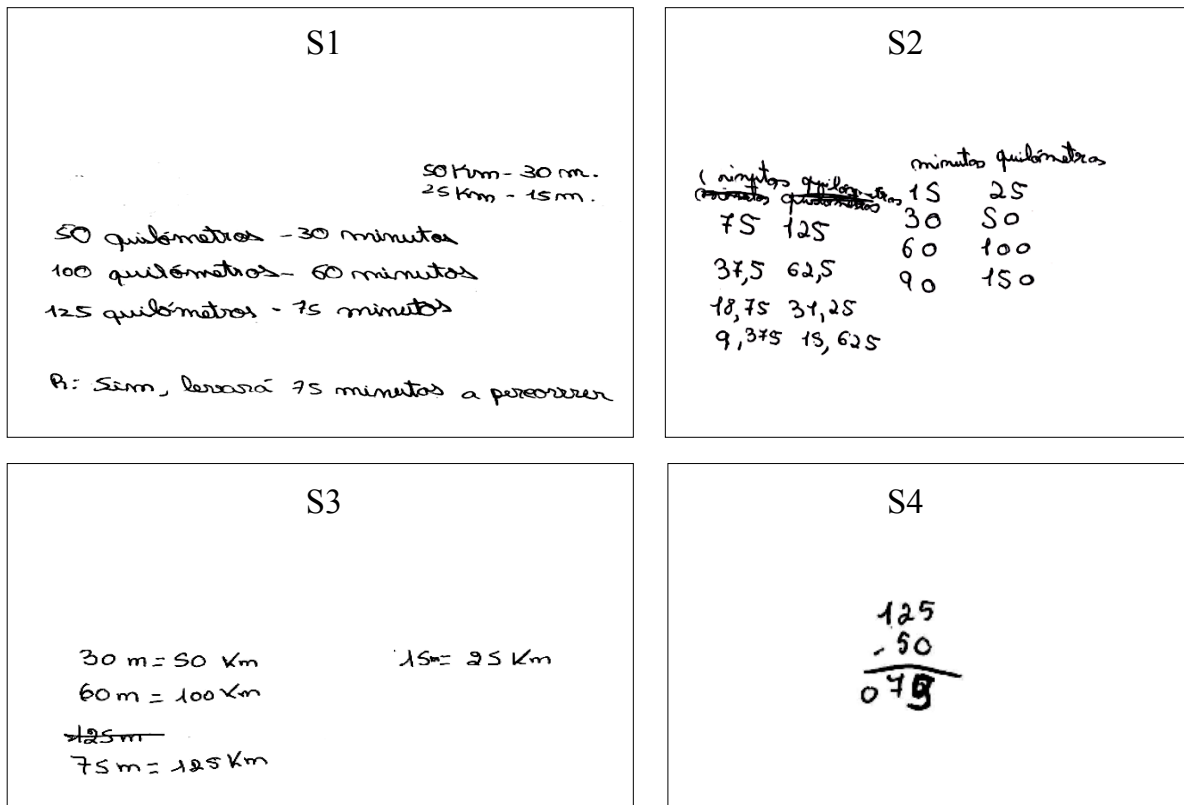 S1
50 Km - 30 m.
25 Km - 15 m.
50 quilómetros - 30 minutos
100 quilómetros - 60 minutos
125 quilómetros - 75 minutos
R: Sim, levará 75 minutos a percorrer
S2
minutos quilómetros
15 25
30 50
60 100
90 150
minutos quilómetros
minutos quilómetros
75 125
37,5 62,5
18,75 31,25
9,375 15,625
S3
30 m = 50 Km
60 m = 100 Km
125m
75 m = 125 Km
15m = 25 Km
S4
125
- 50
075